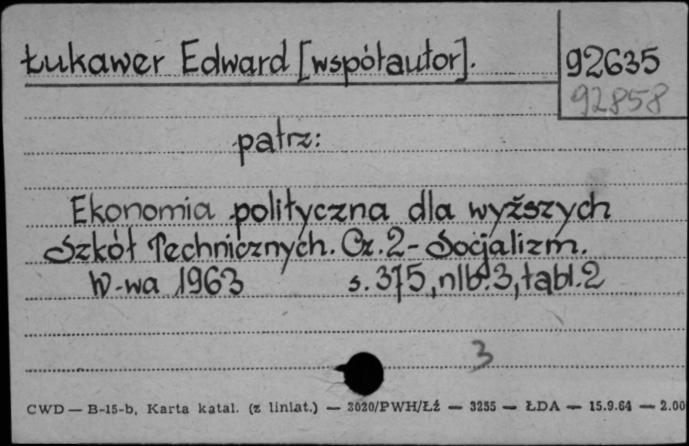 Łukawer Edward [współautor].
92635
92858
patrz:
Ekonomia polityczna dla wyższych
Szkół Technicznych. Cz. 2 - Socjalizm.
W-wa 1963 s. 375, nlb. 3, tabl. 2
3
CWD — B-15-b, Karta katal. (z liniat.) — 3020/PWH/Łź — 3255 — ŁDA — 15.9.64 — 2.00